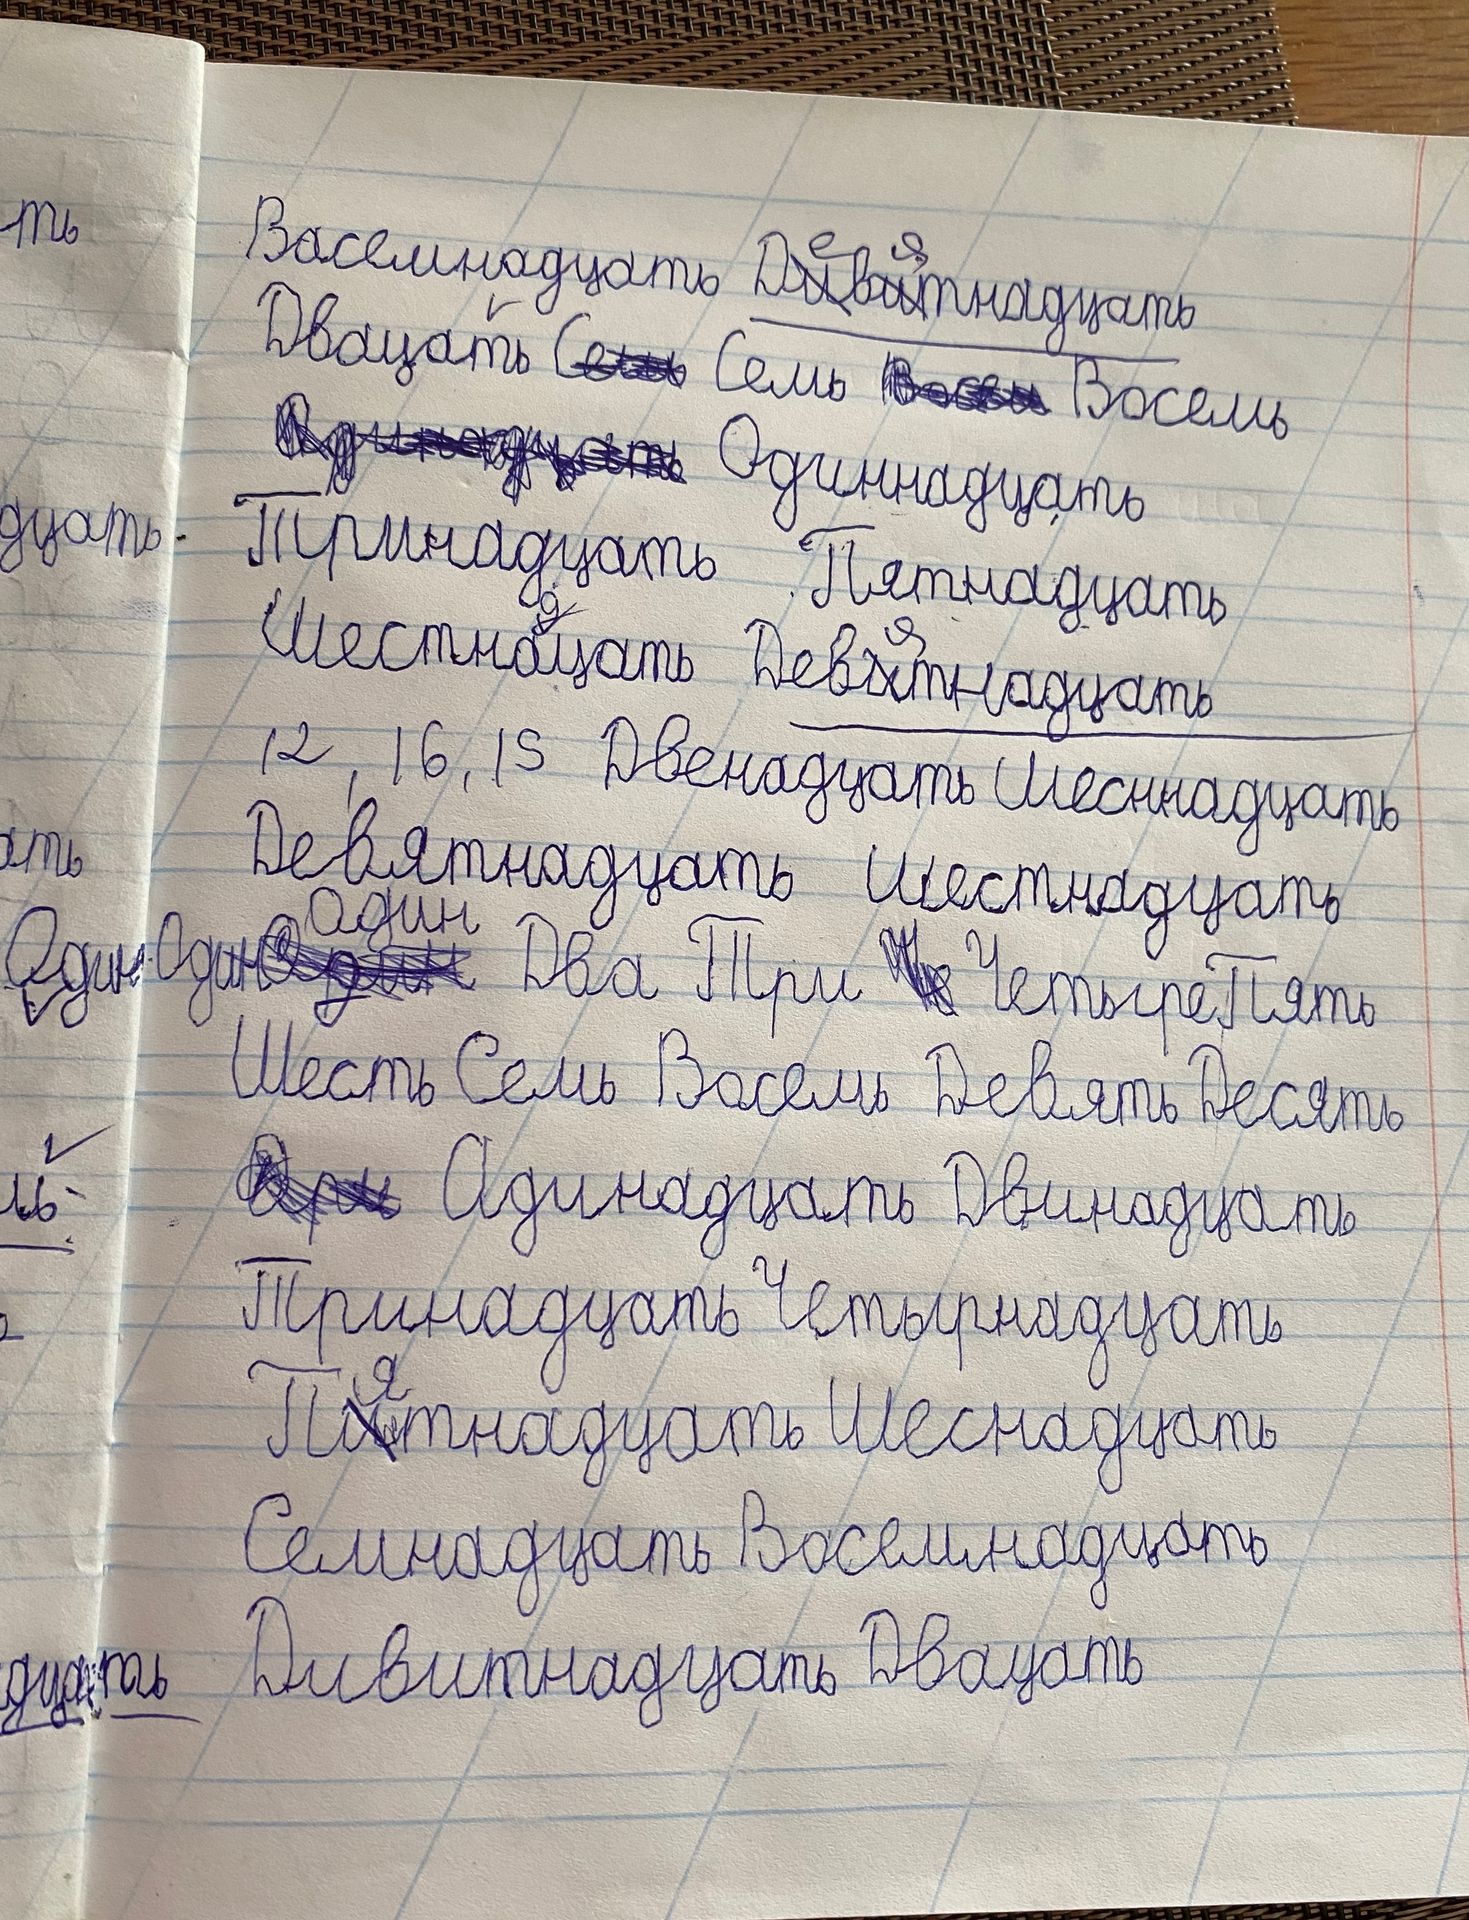 -ть
Восемнадцать Девятнадцать
Двацать Семь Восемь
Одиннадцать
дцать. Тринадцать Пятнадцать
Шестнадцать Девятнадцать
12, 16, 15 Двенадцать Шесннадцать
ать Девятнадцать Шестнадцать
Один Один Один Два Три Четыре Пять
Шесть Семь Восемь Девять Десять
Одинадцать Двинадцать
Тринадцать Четырнадцать
Пятнадцать Шеснадцать
Семнадцать Восемнадцать
дцать Дивитнадцать Двацать